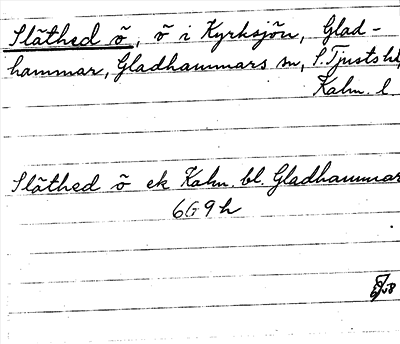 Släthed ö, ö i Kyrksjön, Glad-
hammar, Gladhammars sn, S. Tjusts hd,
Kalm. l.
Släthed ö ek Kalm. bl. Gladhammar
6G9h